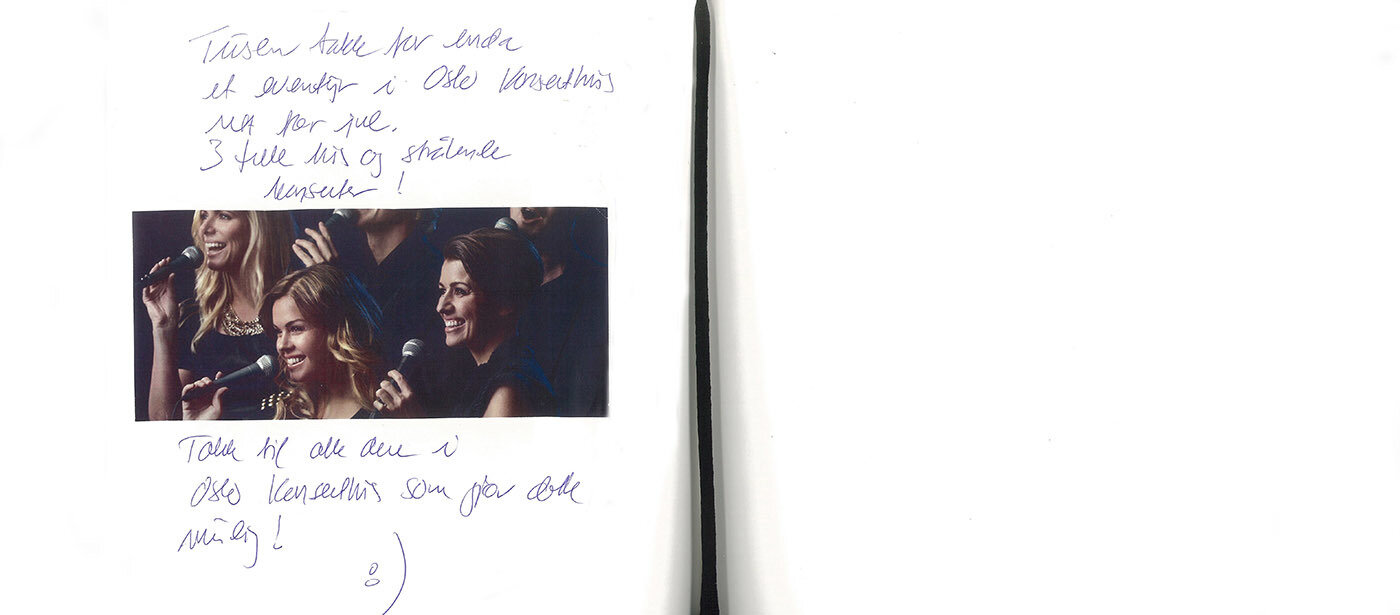 Tusen takk for enda
et eventyr i Oslo Konserthus
rett før jul.
3 fulle hus og strålende
konserter!
Takk til alle dere i
Oslo Konserthus som gjør dette
mulig!
:)